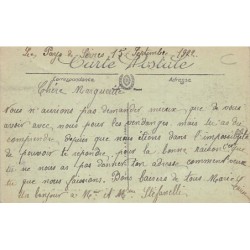 Les Pays de 15 Septembre 1922
Carte Postale
Correspondance Adresse
Chère Marquette
Vous n'aurions pas demander mieux que de vous
avoir avec nous pour les vendanges mais tu as du
comprendre, depuis que nous étions dans l'impossibilité
de pouvoir te répondre, pour la bonne raison que
tu ne nous as pas donner ton adresse comment veux
tu que nous puissions. Bons baisers de tous Marie
Un bonjour à Mr et Mme Stefanelli